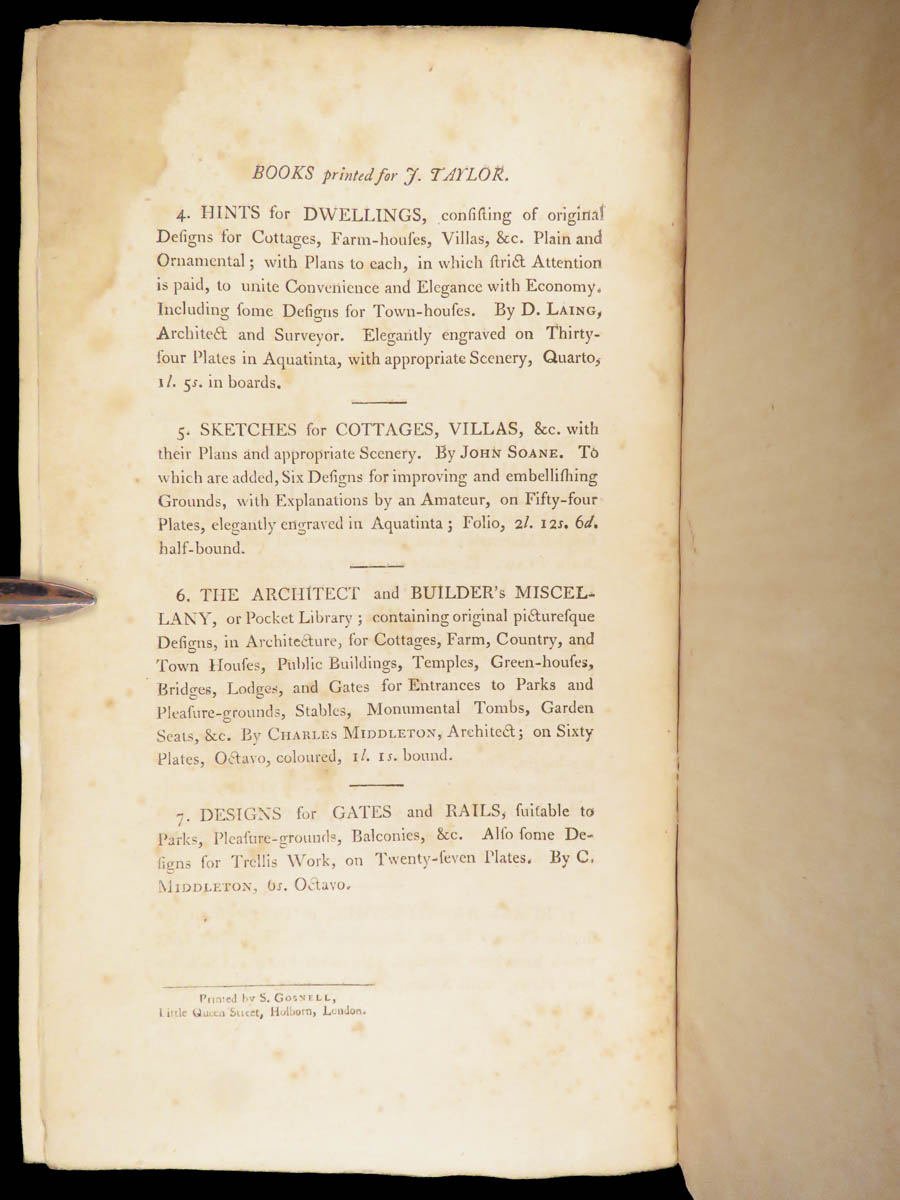 BOOKS printed for J. TAYLOR.
4. HINTS for DWELLINGS, conſiſting of original
Deſigns for Cottages, Farm-houſes, Villas, &c. Plain and
Ornamental; with Plans to each, in which ſtrict Attention
is paid, to unite Convenience and Elegance with Economy.
Including ſome Deſigns for Town-houſes. By D. LAING,
Architect and Surveyor. Elegantly engraved on Thirty-
four Plates in Aquatinta, with appropriate Scenery, Quarto,
1l. 5s. in boards.
5. SKETCHES for COTTAGES, VILLAS, &c. with
their Plans and appropriate Scenery. By JOHN SOANE. To
which are added, Six Deſigns for improving and embelliſhing
Grounds, with Explanations by an Amateur, on Fifty-four
Plates, elegantly engraved in Aquatinta; Folio, 2l. 12s. 6d.
half-bound.
6. THE ARCHITECT and BUILDER's MISCEL-
LANY, or Pocket Library; containing original pictureſque
Deſigns, in Architecture, for Cottages, Farm, Country, and
Town Houſes, Public Buildings, Temples, Green-houſes,
Bridges, Lodges, and Gates for Entrances to Parks and
Pleaſure-grounds, Stables, Monumental Tombs, Garden
Seats, &c. By CHARLES MIDDLETON, Architect; on Sixty
Plates, Octavo, coloured, 1l. 1s. bound.
7. DESIGNS for GATES and RAILS, ſuitable to
Parks, Pleaſure-grounds, Balconies, &c. Alſo ſome De-
ſigns for Trellis Work, on Twenty-ſeven Plates. By C.
MIDDLETON, 6s. Octavo.
Printed by S. GOSNELL,
Little Queen Street, Holborn, London.